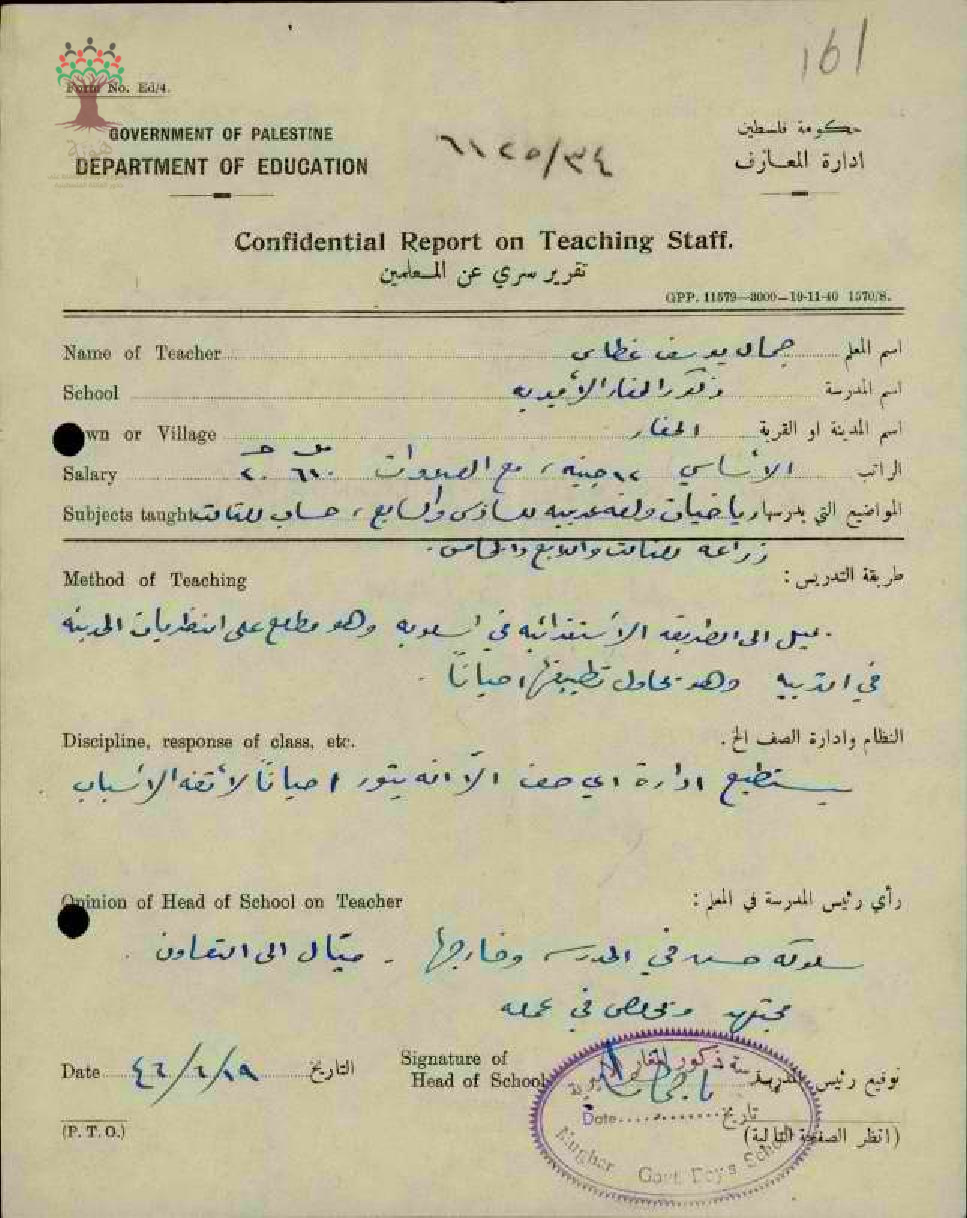 161
Form No. Ed/4.
GOVERNMENT OF PALESTINE
DEPARTMENT OF EDUCATION
حكومة فلسطين
ادارة المعارف
٦١٢٥/٣٤
Confidential Report on Teaching Staff.
تقرير سري عن المعلمين
GPP. 11579—3000—19-11-40 1570/S.
Name of Teacher جمال يوسف غطاس اسم المعلم
School ذكور المغار الأميرية اسم المدرسة
wn or Village المغار اسم المدينة او القرية
Salary الأساسي جنيه، مع العلاوات ٦٩٠ ٢٠ الراتب
Subjects taught رياضيات ولغه عربيه للسادس والسابع، حساب للثالث المواضيع التي يدرسها
زراعه للثالث والرابع والخامس.
Method of Teaching طريقة التدريس:
يميل الى الطريقه الأستقرائيه في اسلوبه وهو مطلع على النظريات الحديثه
في التربيه وهو يحاول تطبيقها احياناً.
Discipline, response of class, etc. النظام وادارة الصف الخ.
يستطيع ادارة اي صف الّا انه يثور احياناً لأتفه الأسباب.
Opinion of Head of School on Teacher رأي رئيس المدرسة في المعلم:
سلوكه حسن في المدرسه وخارجها. ميّال الى التعاون.
مجتهد ومخلص في عمله
Date ٤٦/٦/١٩ التاريخ
Signature of
Head of School
توقيع رئيس المدرسة
ذكور المغار
Date تاريخ
Mughar Govt. Boys School
(P. T. O.) (انظر الصفحة التالية)